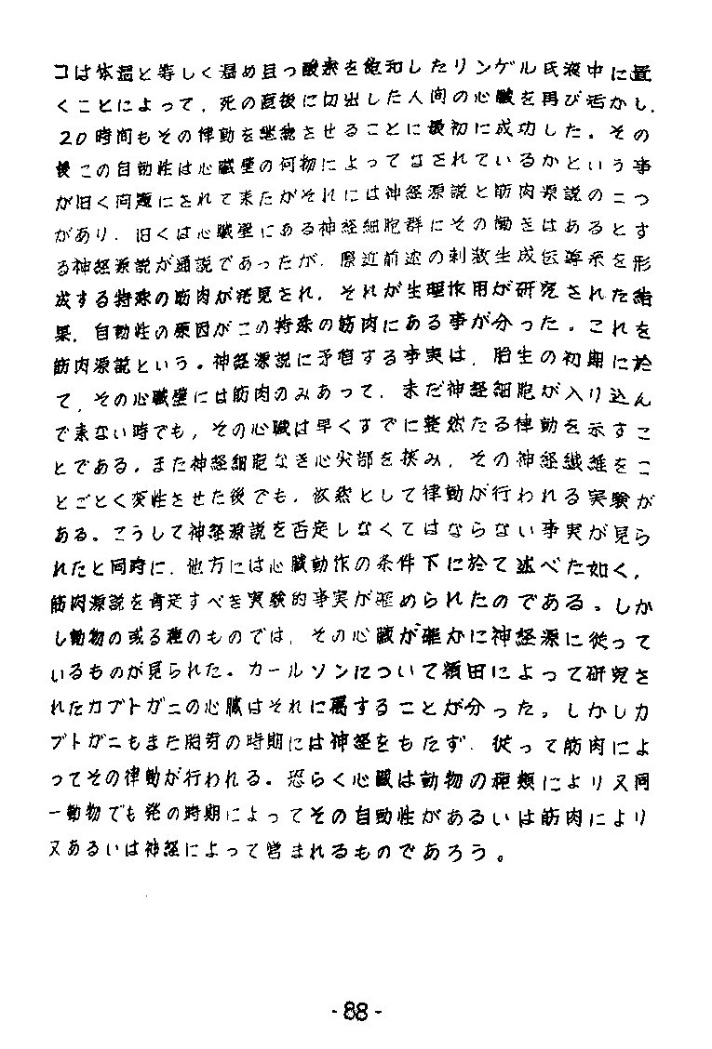 コは体温と等しく温め且っ酸素を飽和したリンゲル氏液中に置
くことによって、死の直後に切出した人间の心臓を再び活かし、
20時间もその律動を継続させることに最初に成功した。その
後この自動性は心臓壁の何物によってなされているかという事
が旧く问題にされて来たがそれには神経源説と筋肉源説の二つ
があり、旧くは心臓壁にある神経細胞群にその働きはあるとす
る神経源説が通説であったが、最近前述の刺激生成伝導系を形
成する特殊の筋肉が発見され、それが生理作用が研究された結
果、自動性の原因がこの特殊の筋肉にある事が分った。これを
筋肉源説という。神経源説に矛盾する事実は、胎生の初期に於
て、その心臓壁には筋肉のみあって、未だ神経細胞が入り込ん
で来ない時でも、その心臓は早くすでに整然たる律動を示すこ
とである。また神経細胞なき心尖部を挟み、その神経繊維をこ
とごとく変性させた後でも、依然として律動が行われる実験が
ある。こうして神経源説を否定しなくてはならない事実が見ら
れたと同時に、他方には心臓動作の条件下に於て述べた如く、
筋肉源説を肯定すべき実験的事実が確められたのである。しか
し動物の或る種のものでは、その心臓が確かに神経源に従って
いるものが見られた。カールソンについて額田によって研究さ
れたカブトガニの心臓はそれに属することが分った。しかしカ
ブトガニもまた胎芽の時期には神経をもたず、従って筋肉によ
ってその律動が行われる。恐らく心臓は動物の種類により又同
一動物でも発の時期によってその自動性があるいは筋肉により
又あるいは神経によって営まれるものであろう。
-88-